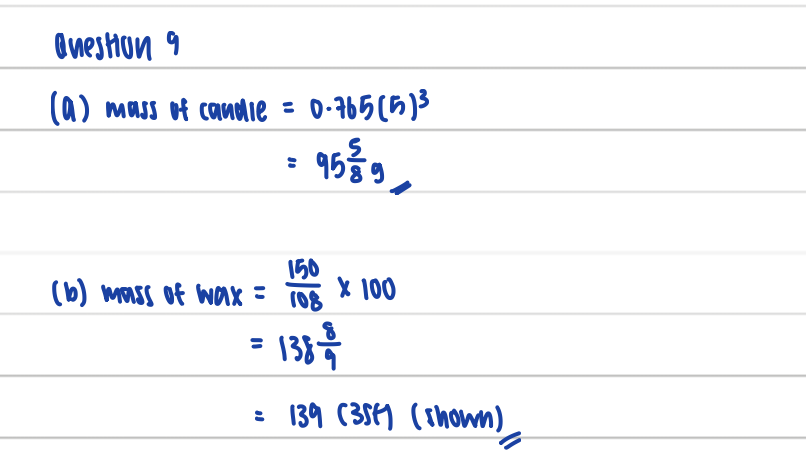 Question 9
(a) mass of candle = 0.765(5)³
= 95 5/8 g
(b) mass of wax = 150/108 x 100
= 138 8/9
= 139 (3sf) (shown)